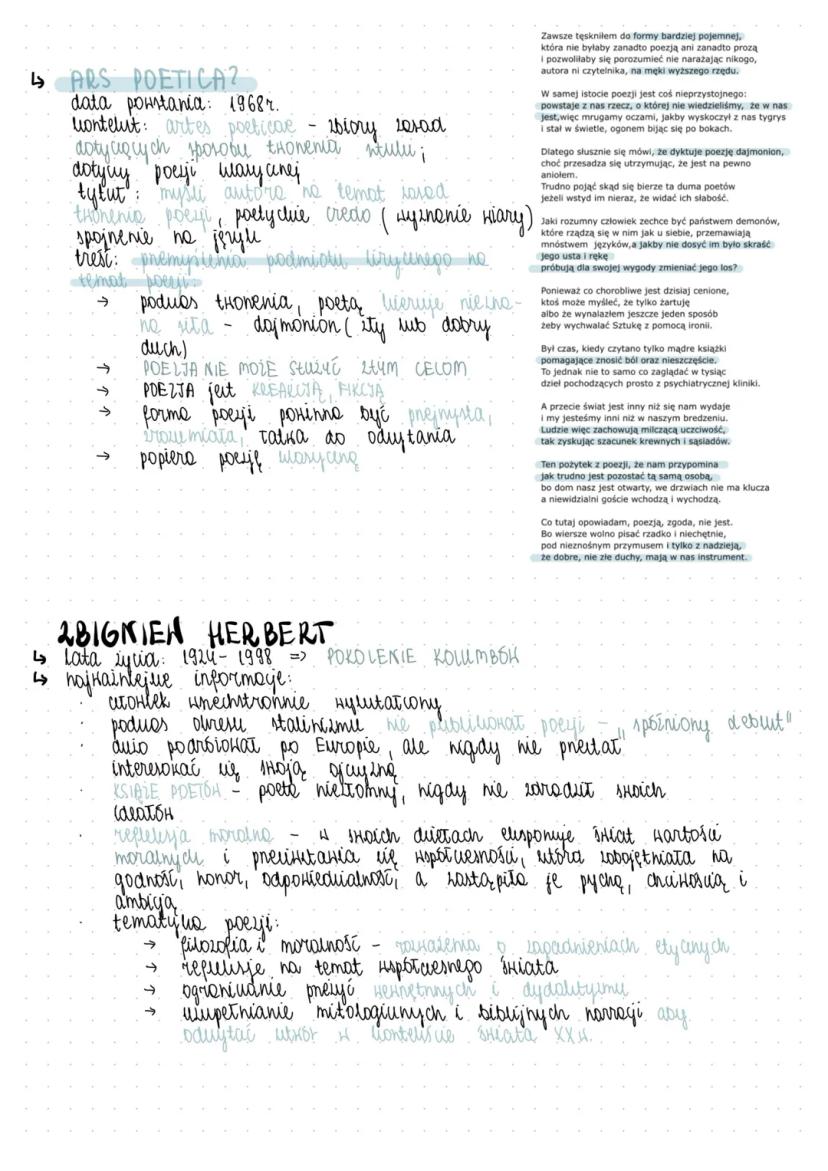 ↳ ARS POETICA?
data powstania: 1968r.
kontekst: artes poeticae - zbiory zasad
dotyczących sposobu tworzenia stylu;
dotyczy poezji klasycznej
tytuł: myśli autora na temat zasad
tworzenia poezji, poetyckie credo (wyznanie wiary)
spojrzenie na język
treść: przemyślenia podmiotu lirycznego na
temat poezji:
→ podczas tworzenia, poetą kieruje niezna-
na siła - dajmonion (zły lub dobry
duch)
→ POEZJA NIE MOŻE SŁUŻYĆ ZŁYM CELOM
→ POEZJA jest KREAKCJĄ, FIKCJĄ
→ forma poezji powinna być przejrzysta,
zrozumiała, łatwa do odczytania
→ popiera poezję klasyczną
Zawsze tęskniłem do formy bardziej pojemnej,
która nie byłaby zanadto poezją ani zanadto prozą
i pozwoliłaby się porozumieć nie narażając nikogo,
autora ni czytelnika, na męki wyższego rzędu.
W samej istocie poezji jest coś nieprzystojnego:
powstaje z nas rzecz, o której nie wiedzieliśmy, że w nas
jest,więc mrugamy oczami, jakby wyskoczył z nas tygrys
i stał w świetle, ogonem bijąc się po bokach.
Dlatego słusznie się mówi, że dyktuje poezję dajmonion,
choć przesadza się utrzymując, że jest na pewno
aniołem.
Trudno pojąć skąd się bierze ta duma poetów
jeżeli wstyd im nieraz, że widać ich słabość.
Jaki rozumny człowiek zechce być państwem demonów,
które rządzą się w nim jak u siebie, przemawiają
mnóstwem języków,a jakby nie dosyć im było skraść
jego usta i rękę
próbują dla swojej wygody zmieniać jego los?
Ponieważ co chorobliwe jest dzisiaj cenione,
ktoś może myśleć, że tylko żartuję
albo że wynalazłem jeszcze jeden sposób
żeby wychwalać Sztukę z pomocą ironii.
Był czas, kiedy czytano tylko mądre książki
pomagające znosić ból oraz nieszczęście.
To jednak nie to samo co zaglądać w tysiąc
dzieł pochodzących prosto z psychiatrycznej kliniki.
A przecie świat jest inny niż się nam wydaje
i my jesteśmy inni niż w naszym bredzeniu.
Ludzie więc zachowują milczącą uczciwość,
tak zyskując szacunek krewnych i sąsiadów.
Ten pożytek z poezji, że nam przypomina
jak trudno jest pozostać tą samą osobą,
bo dom nasz jest otwarty, we drzwiach nie ma klucza
a niewidzialni goście wchodzą i wychodzą.
Co tutaj opowiadam, poezją, zgoda, nie jest.
Bo wiersze wolno pisać rzadko i niechętnie,
pod nieznośnym przymusem i tylko z nadzieją,
że dobre, nie złe duchy, mają w nas instrument.
ZBIGNIEW HERBERT
↳ lata życia: 1924-1998 => POKOLENIE KOLUMBÓW
↳ najważniejsze informacje:
· człowiek wszechstronnie wykształcony
· podczas okresu stalinizmu nie publikował poezji - "spóźniony debiut"
· dużo podróżował po Europie, ale nigdy nie przestał
interesować się swoją ojczyzną
· KSIĄŻE POETÓW - poeta niezłomny, nigdy nie zdradził swoich
ideałów
· refleksja moralna - w swoich dziełach eksponuje świat wartości
moralnych i przeciwstawia się współczesności, która zobojętniała na
godność, honor, odpowiedzialność, a zastąpiła je pychą, chciwością i
ambicją
· tematyka poezji:
→ filozofia i moralność - rozważania o zagadnieniach etycznych
→ refleksje na temat współczesnego świata
→ ograniczanie przeżyć wewnętrznych i dydaktyzmu
→ uzupełnianie mitologicznych i biblijnych narracji aby
odczytać utwór w kontekście świata XXw.